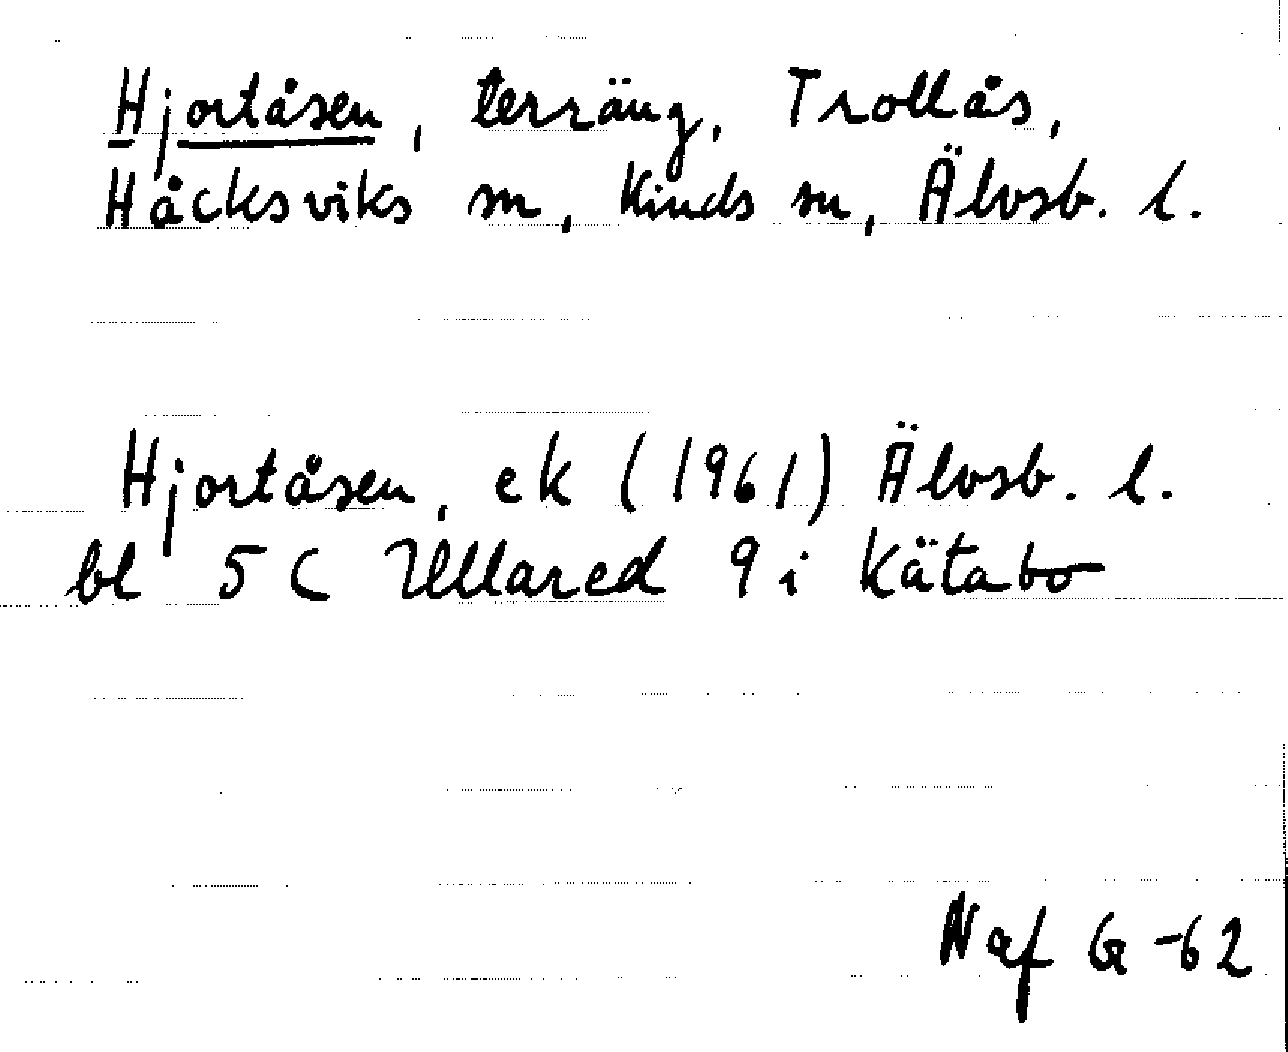 Hjortåsen, terräng, Trollås,
Håcksviks sn, Kinds sn, Älvsb. l.
Hjortåsen, ek (1961) Älvsb. l.
bl 5 C Ullared 9 i Kätabo
N af G -62